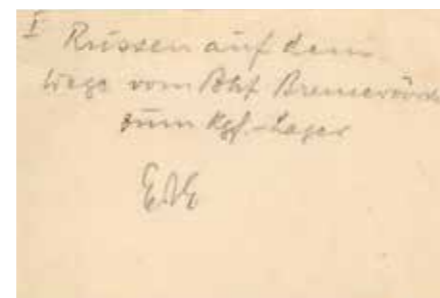 I Russen auf dem
Wege vom Bhf Bremervörd
zum Kgf.-Lager